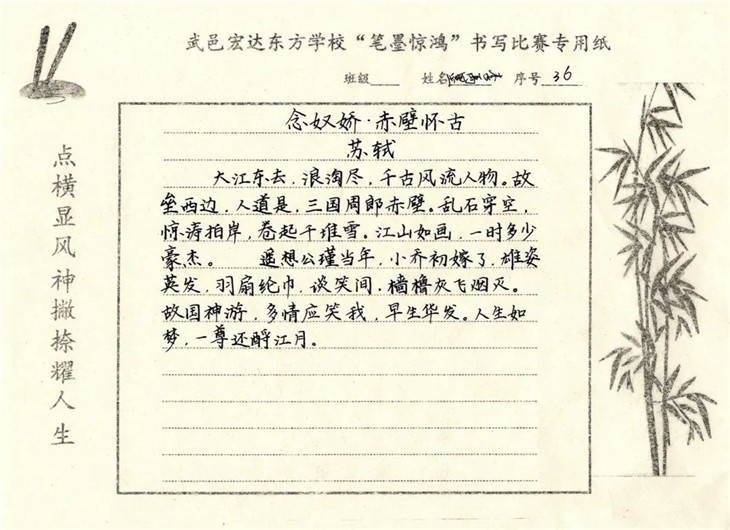 武邑宏达东方学校“笔墨惊鸿”书写比赛专用纸
班级 姓名 序号 36
点横显风神撇捺耀人生
念奴娇·赤壁怀古
苏轼
大江东去，浪淘尽，千古风流人物。故
垒西边，人道是，三国周郎赤壁。乱石穿空，
惊涛拍岸，卷起千堆雪。江山如画，一时多少
豪杰。 遥想公瑾当年，小乔初嫁了，雄姿
英发，羽扇纶巾，谈笑间，樯橹灰飞烟灭。
故国神游，多情应笑我，早生华发。人生如
梦，一尊还酹江月。